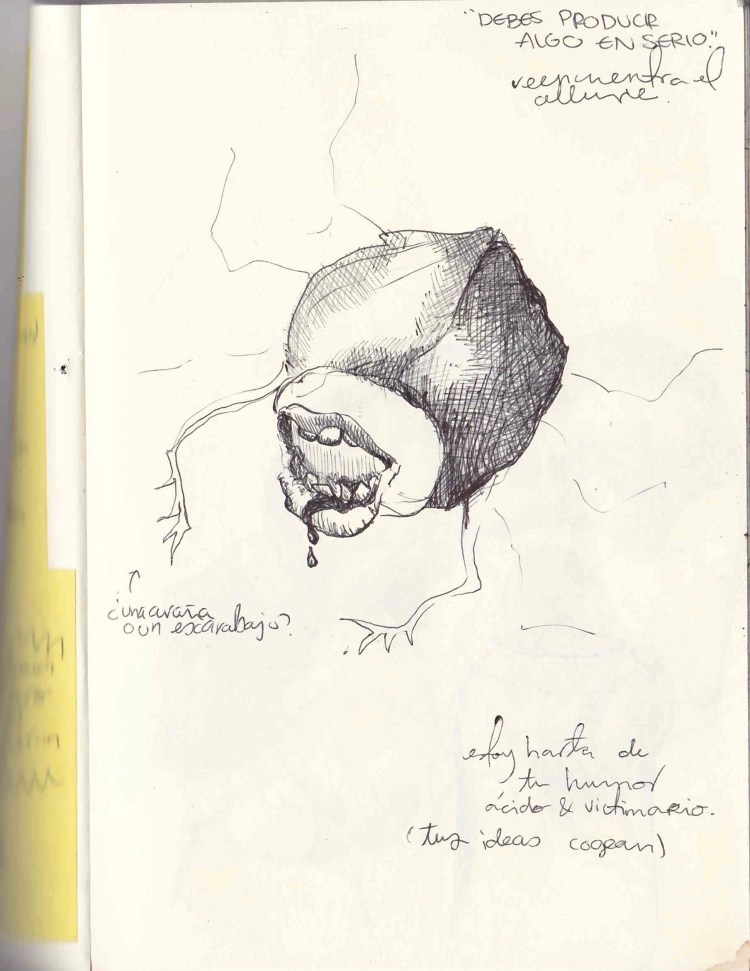 "DEBES PRODUCIR
ALGO EN SERIO."
el
¿una araña
o un escarabajo?
estoy harta de
tu humor
ácido & victimario.
(tus ideas cogean)